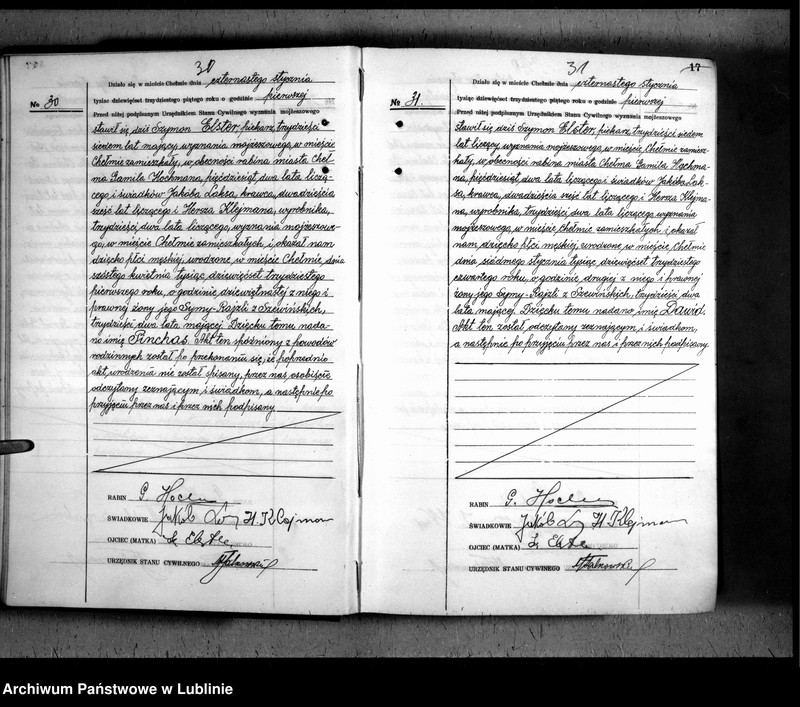 30
Działo się w mieście Chełmie dnia czternastego stycznia
№ 30
tysiąc dziewięćset trzydziestego piątego roku o godzinie pierwszej
Przed niżej podpisanym Urzędnikiem Stanu Cywilnego wyznania mojżeszowego
stawił się dziś Szymon Elster, piekarz, trzydzieści
siedem lat mający, wyznania mojżeszowego, w mieście
Chełmie zamieszkały, w obecności rabina miasta Cheł-
ma Gamila Hochmana, pięćdziesiąt dwa lata liczą-
cego i świadków Jakóba Laksa, krawca, dwadzieścia
sześć lat liczącego i Hersza Klejmana, wyrobnika,
trzydzieści dwa lata liczącego, wyznania mojżeszowe-
go, w mieście Chełmie zamieszkałych, i okazał nam
dziecko płci męskiej, urodzone w mieście Chełmie, dnia
szóstego kwietnia tysiąc dziewięćset trzydziestego
pierwszego roku, o godzinie dziewiętnastej z niego i
prawnej żony jego Symy-Rajzli z Szewińskich,
trzydzieści dwa lata mającej. Dziecku temu nada-
no imię Pinchas. Akt ten spóźniony z powodów
rodzinnych został po przekonaniu się, że poprzednio
akt urodzenia nie został spisany, przez nas osobiście
odczytany zeznającym i świadkom, a następnie po
przyjęciu przez nas i przez nich podpisany.
RABIN G. Hochm
ŚWIADKOWIE Jakób L H. Klajman
OJCIEC (MATKA) S. Elster
URZĘDNIK STANU CYWILNEGO
31
17
Działo się w mieście Chełmie dnia czternastego stycznia
№ 31.
tysiąc dziewięćset trzydziestego piątego roku o godzinie pierwszej
Przed niżej podpisanym Urzędnikiem Stanu Cywilnego wyznania mojżeszowego
stawił się dziś Szymon Elster, piekarz, trzydzieści siedem
lat liczący, wyznania mojżeszowego, w mieście Chełmie zamiesz-
kały, w obecności rabina miasta Chełma Gamila Hochma-
na, pięćdziesiąt dwa lata liczącego i świadków Jakóba Lak-
sa, krawca, dwadzieścia sześć lat liczącego i Hersza Klejma-
na, wyrobnika, trzydzieści dwa lata liczącego wyznania
mojżeszowego, w mieście Chełmie zamieszkałych i okazał
nam dziecko płci męskiej, urodzone w mieście Chełmie
dnia siódmego stycznia tysiąc dziewięćset trzydziestego
czwartego roku, o godzinie drugiej z niego i prawnej
żony jego Symy-Rajzli z Szewińskich, trzydzieści dwa
lata mającej. Dziecku temu nadano imię Dawid.
Akt ten został odczytany zeznającym i świadkom,
a następnie po przyjęciu przez nas i przez nich podpisany.
RABIN G. Hochm
ŚWIADKOWIE Jakób L H. Klajman
OJCIEC (MATKA) S. Elster
URZĘDNIK STANU CYWILNEGO
Archiwum Państwowe w Lublinie